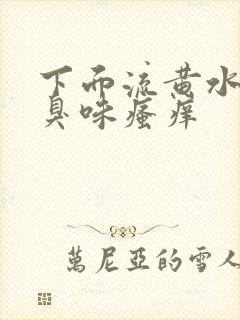 下面流黄水
臭味瘙痒
萬尼亞的雪人